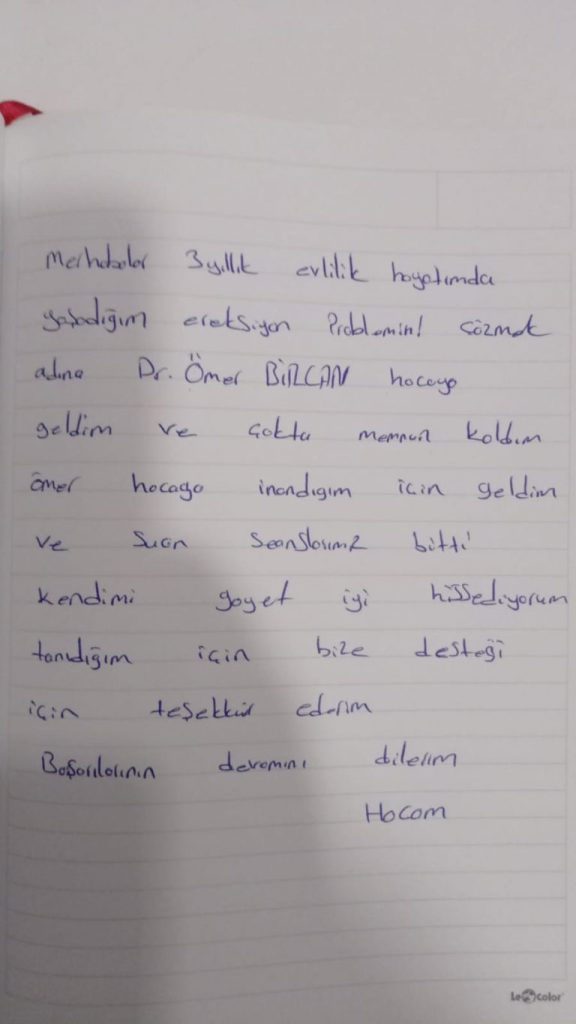 Merhabalar 3 yıllık evlilik hayatımda
yaşadığım ereksiyon Problemini çözmek
adına Dr. Ömer BİRCAN hocaya
geldim ve çokta memnun koldım
ömer hocaya inandıgım için geldim
ve şuan seanslarımız bitti
kendimi gayet iyi hissediyorum
tanıdığım için bize desteği
için teşekkür ederim
Başarılarının devamını dilerim
Hocam
Le Color